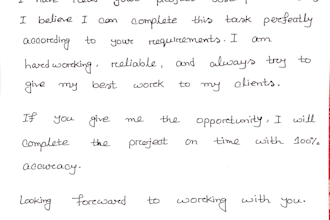 I have read your project
I believe I can complete this task perfectly
according to your requirements. I am
hardworking, reliable, and always try to
give my best work to my clients.
If you give me the opportunity, I will
complete the project on time with 100%
accuracy.
Looking forward to working with you.